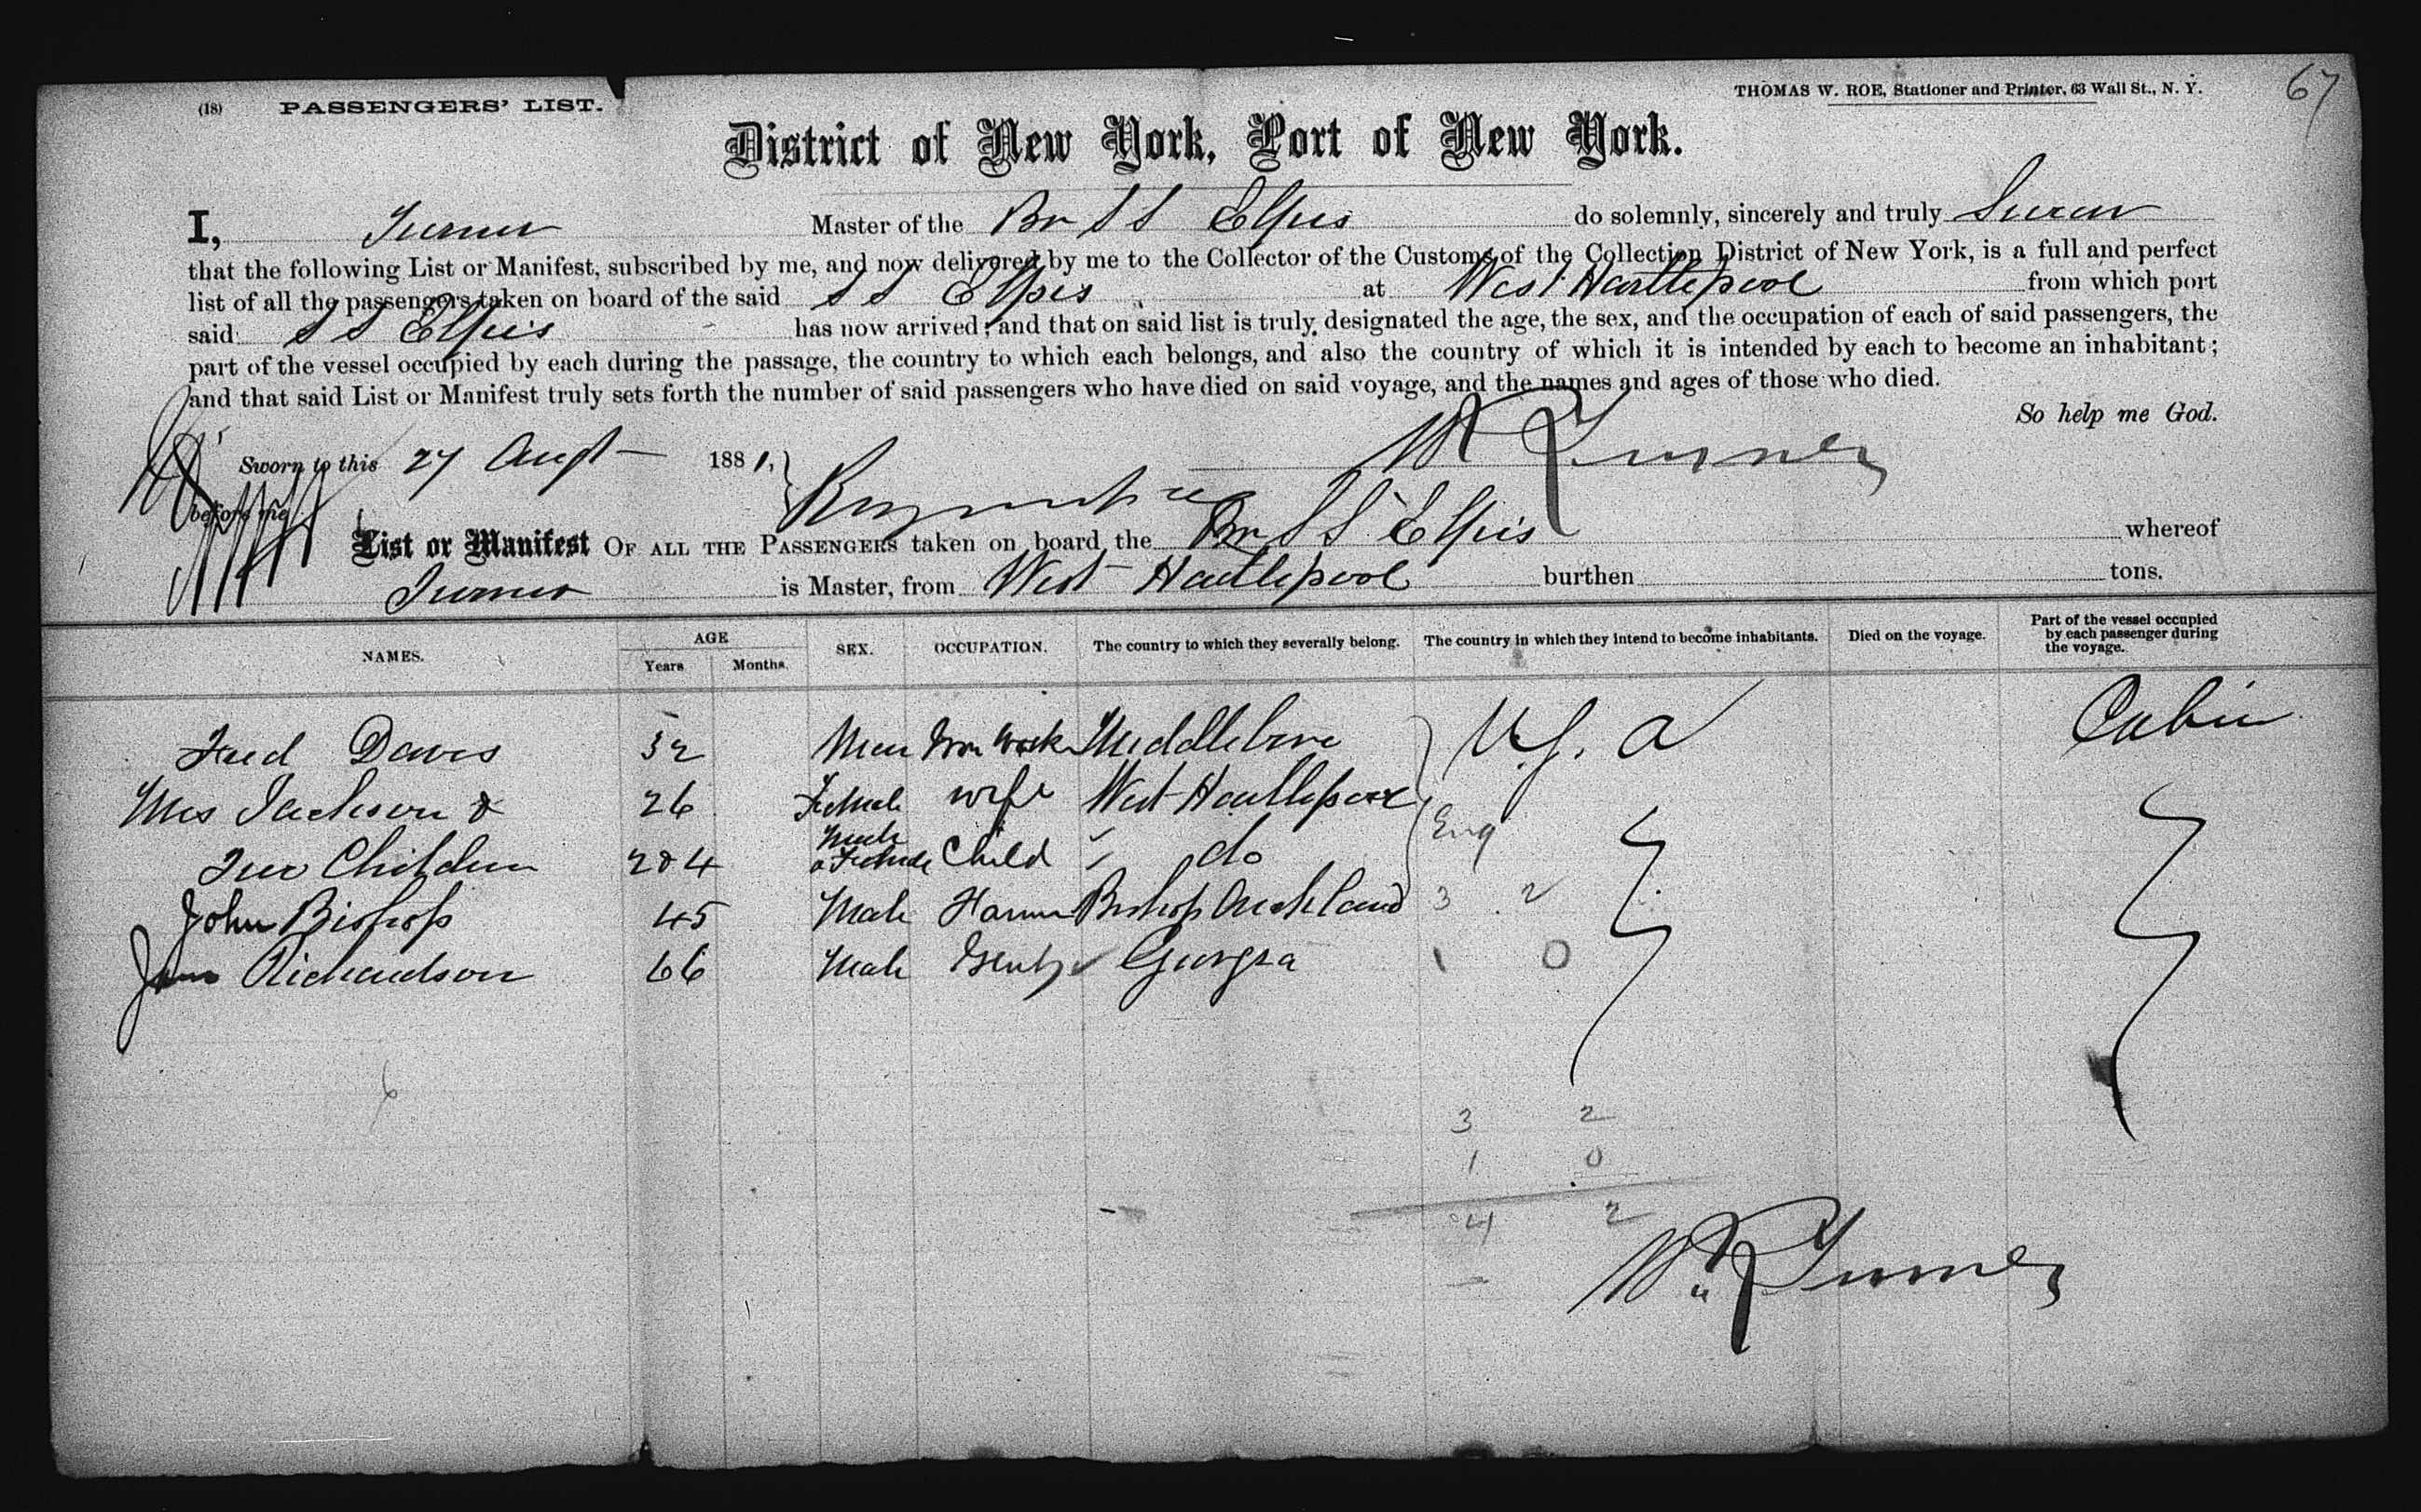 67
(18) PASSENGERS' LIST. THOMAS W. ROE, Stationer and Printer, 63 Wall St., N. Y.
District of New York, Port of New York.
I, Turner Master of the Br S S Elpis do solemnly, sincerely and truly Swear
that the following List or Manifest, subscribed by me, and now delivered by me to the Collector of the Customs of the Collection District of New York, is a full and perfect
list of all the passengers taken on board of the said S S Elpis at West Hartlepool from which port
said S S Elpis has now arrived; and that on said list is truly designated the age, the sex, and the occupation of each of said passengers, the
part of the vessel occupied by each during the passage, the country to which each belongs, and also the country of which it is intended by each to become an inhabitant;
and that said List or Manifest truly sets forth the number of said passengers who have died on said voyage, and the names and ages of those who died.
So help me God.
Sworn to this 27 Augt 1881, W Turner
before me
List or Manifest OF ALL THE PASSENGERS taken on board the Br S S Elpis whereof
Turner is Master, from West Hartlepool burthen tons.
NAMES. AGE Years Months. SEX. OCCUPATION. The country to which they severally belong. The country in which they intend to become inhabitants. Died on the voyage. Part of the vessel occupied by each passenger during the voyage.
Fred Davis 32 Man Iron Work Middlebro U.S. a Cabin
Mrs Jackson & 26 Female wife West Hartlepool Eng
Two Children 2 & 4 Male & Female Child do
John Bishop 45 Male Farmer Bishop Auckland 3 2
Richardson 66 Male Georgia 1 0
6
3 2
1 0
4 2
Wm Turner